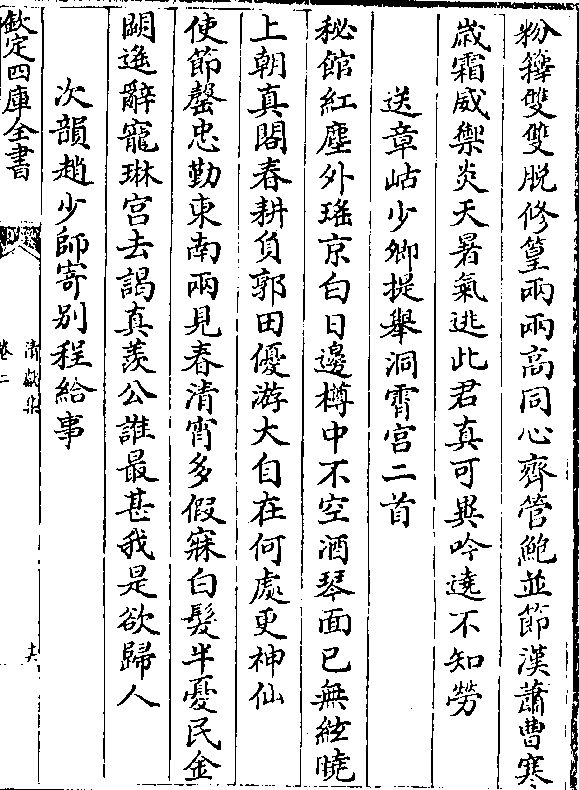 粉籜雙雙脫修篁兩兩高同心齊管鮑並節漢蕭曹寒
歳霜威禦炎天暑氣逃此君真可異吟遶不知勞
送章岵少卿提舉洞霄宫二首
秘館紅塵外瑤京白日邊樽中不空酒琴面已無絃曉
上朝真閣春耕負郭田優游大自在何處更神仙
使節罄忠勤東南兩見春清宵多假寐白髮半憂民金
闕遙辭寵琳宫去謁真羨公誰最甚我是欲歸人
次韻趙少師寄別程給事
欽定四庫全書
清獻集
卷二